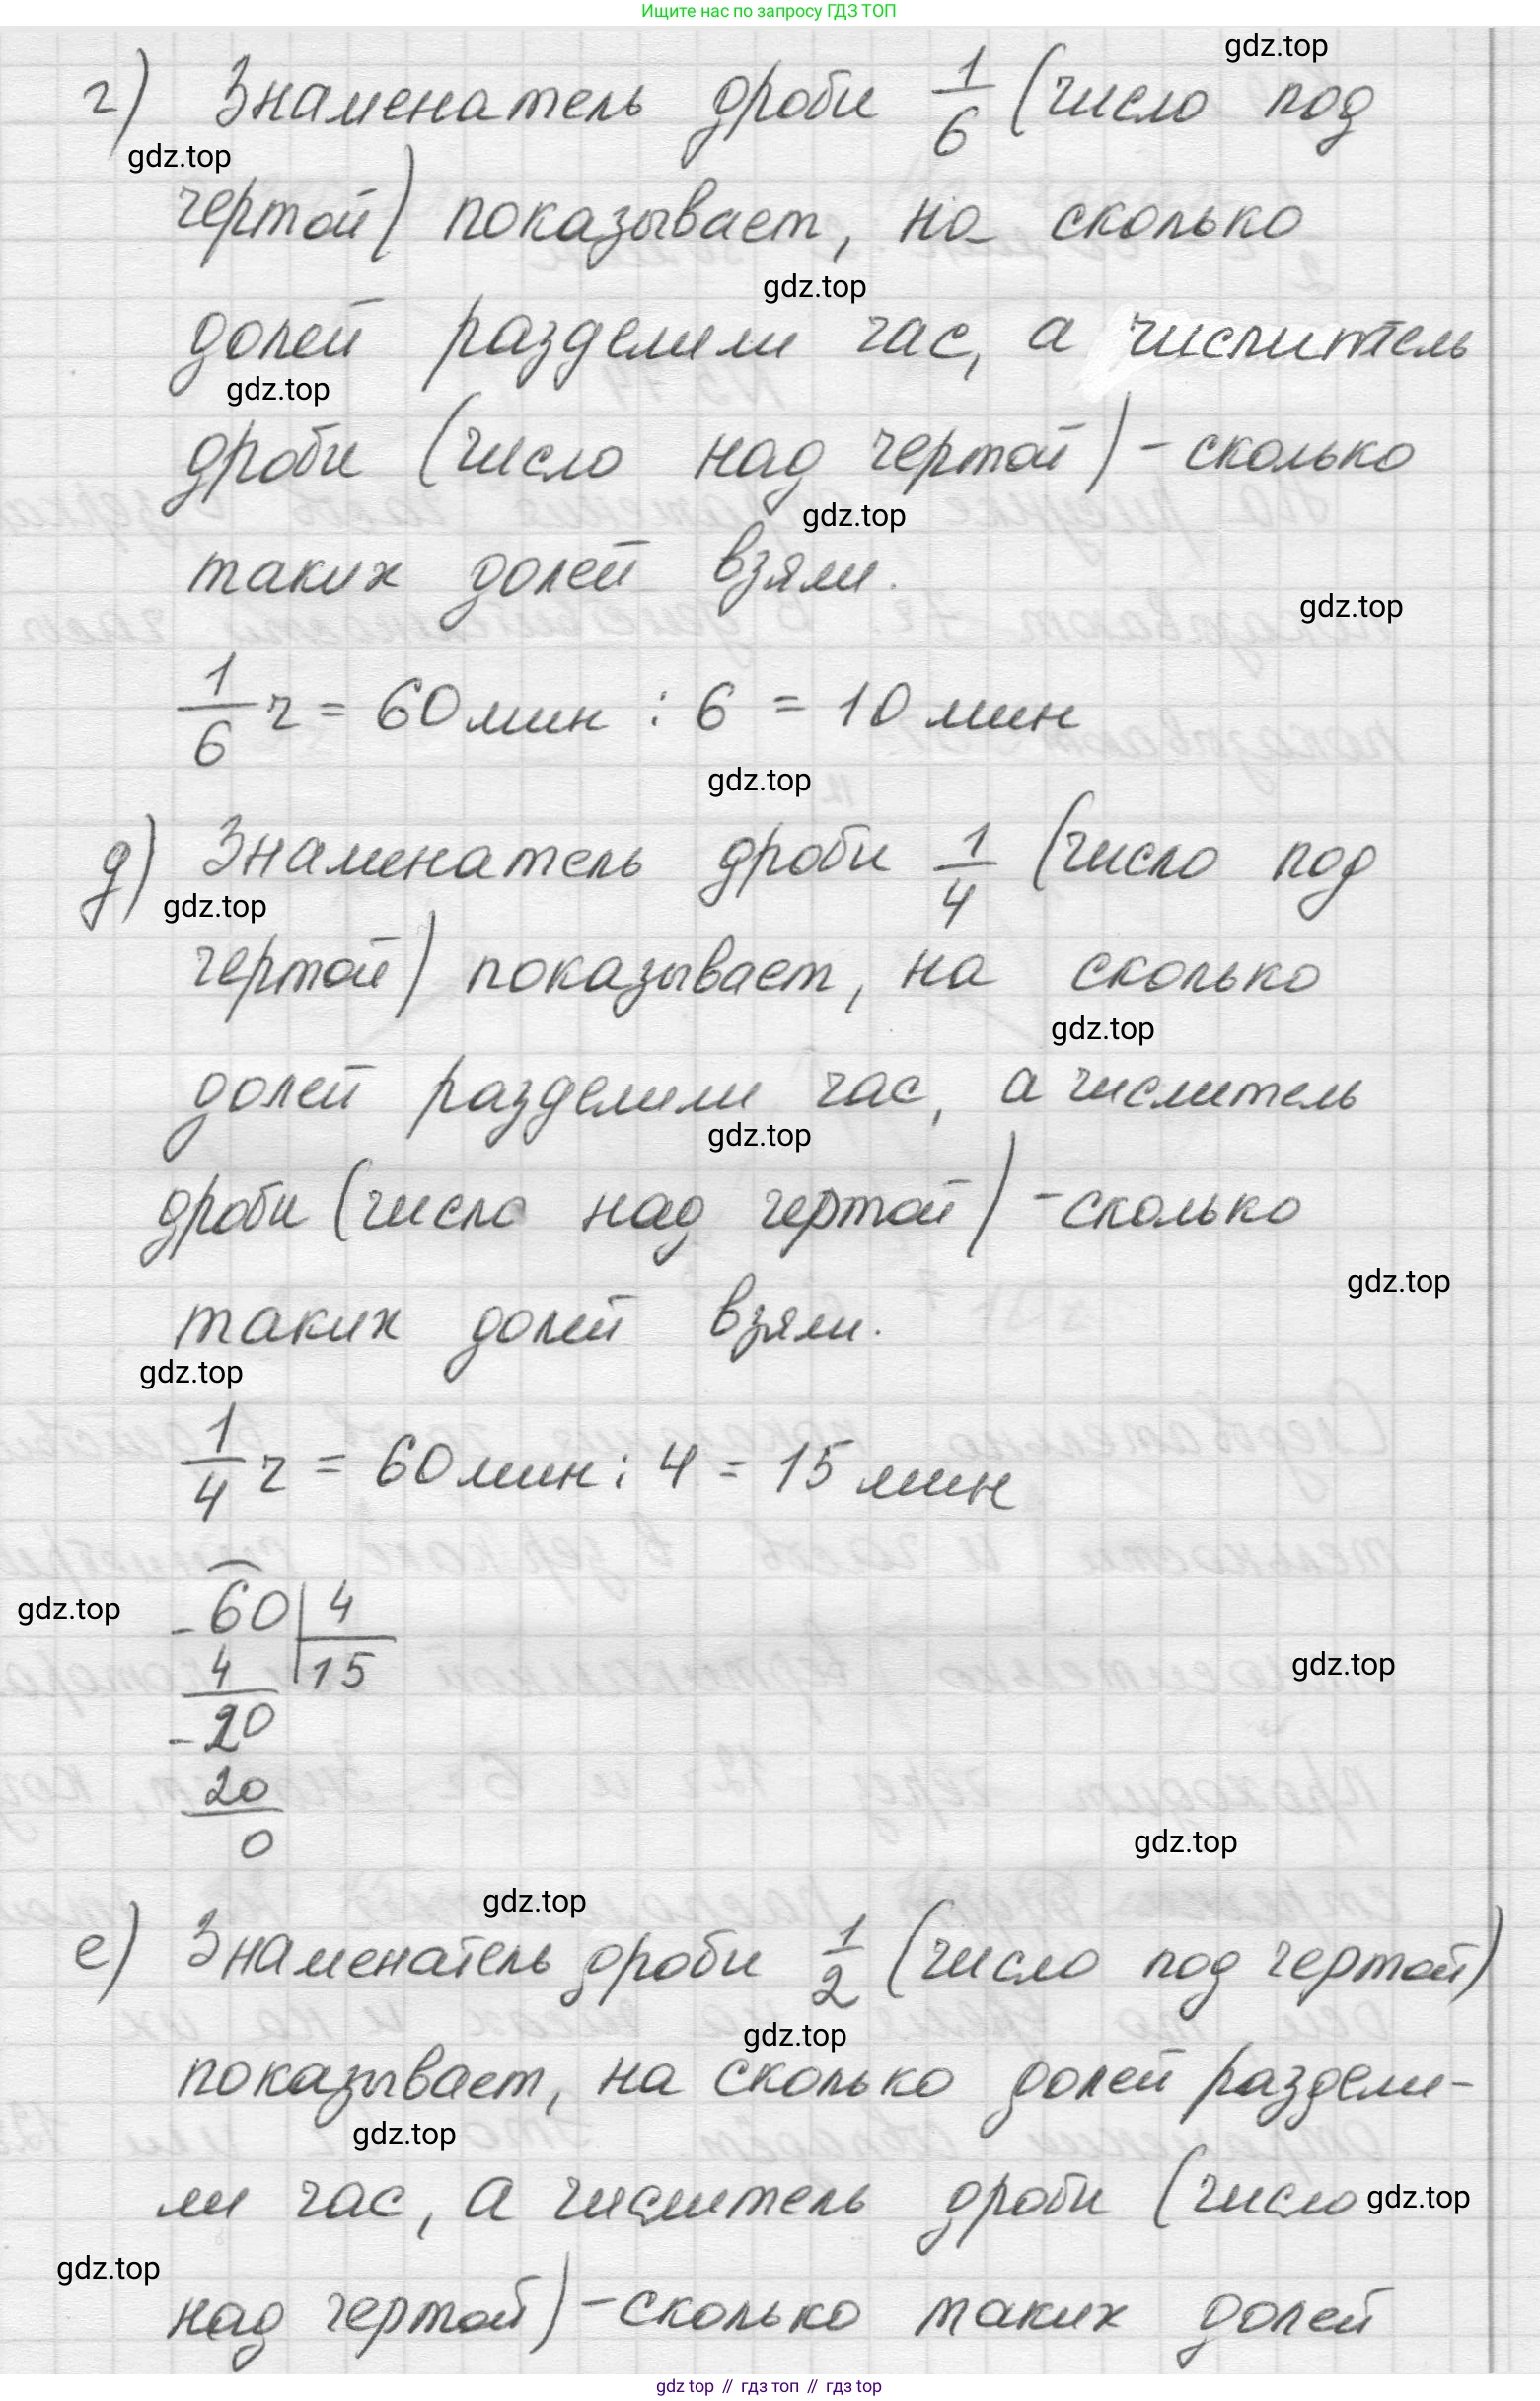 Ищите нас по запросу ГДЗ ТОП
gdz.top
г) Знаменатель дроби 1/6 (число под
gdz.top
чертой) показывает, на сколько
gdz.top
долей разделили час, а числитель
gdz.top
дроби (число над чертой) - сколько
gdz.top
таких долей взяли.
gdz.top
1/6 ч = 60 мин : 6 = 10 мин
gdz.top
д) Знаменатель дроби 1/4 (число под
gdz.top
чертой) показывает, на сколько
gdz.top
долей разделили час, а числитель
gdz.top
дроби (число над чертой) - сколько
gdz.top
таких долей взяли.
gdz.top
1/4 ч = 60 мин : 4 = 15 мин
gdz.top
- 60 | 4
4 | 15
gdz.top
- 20
20
0
gdz.top
gdz.top
е) Знаменатель дроби 1/2 (число под чертой)
gdz.top
показывает, на сколько долей раздели-
gdz.top
ли час, а числитель дроби (число
gdz.top
gdz.top
над чертой) - сколько таких долей
gdz top // гдз топ // гдз top